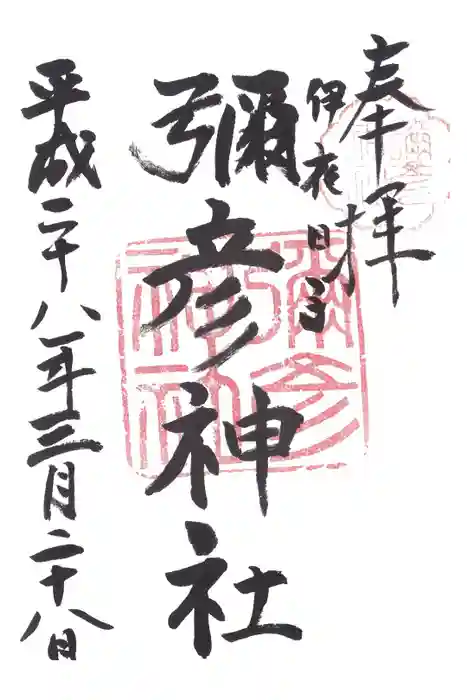 奉拝
伊夜日子
彌彦神社
平成二十八年三月二十八日
彌彦神社